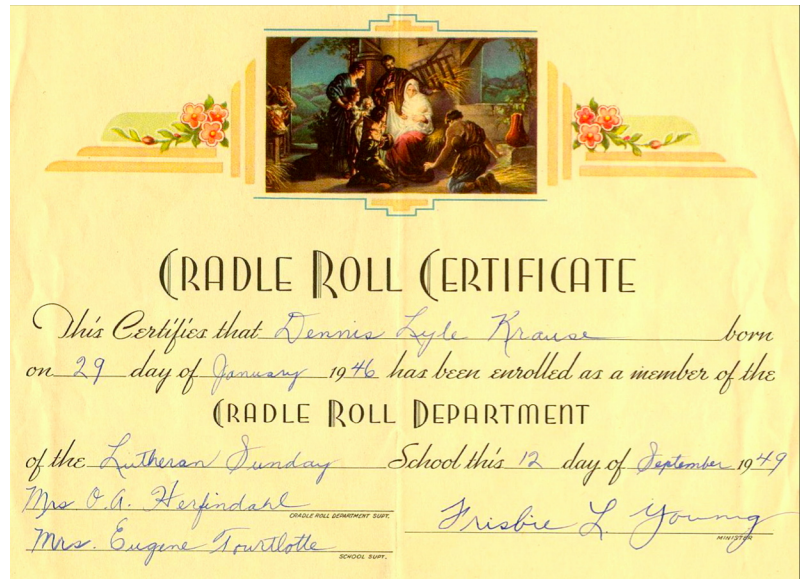 CRADLE ROLL CERTIFICATE
This Certifies that Dennis Lyle Krause born
on 29 day of January 1946 has been enrolled as a member of the
CRADLE ROLL DEPARTMENT
of the Lutheran Sunday School this 12 day of September 1949
Mrs O. A. Herfindahl
CRADLE ROLL DEPARTMENT SUPT.
Frisbie L. Young
MINISTER
Mrs. Eugene Tourtlotte
SCHOOL SUPT.